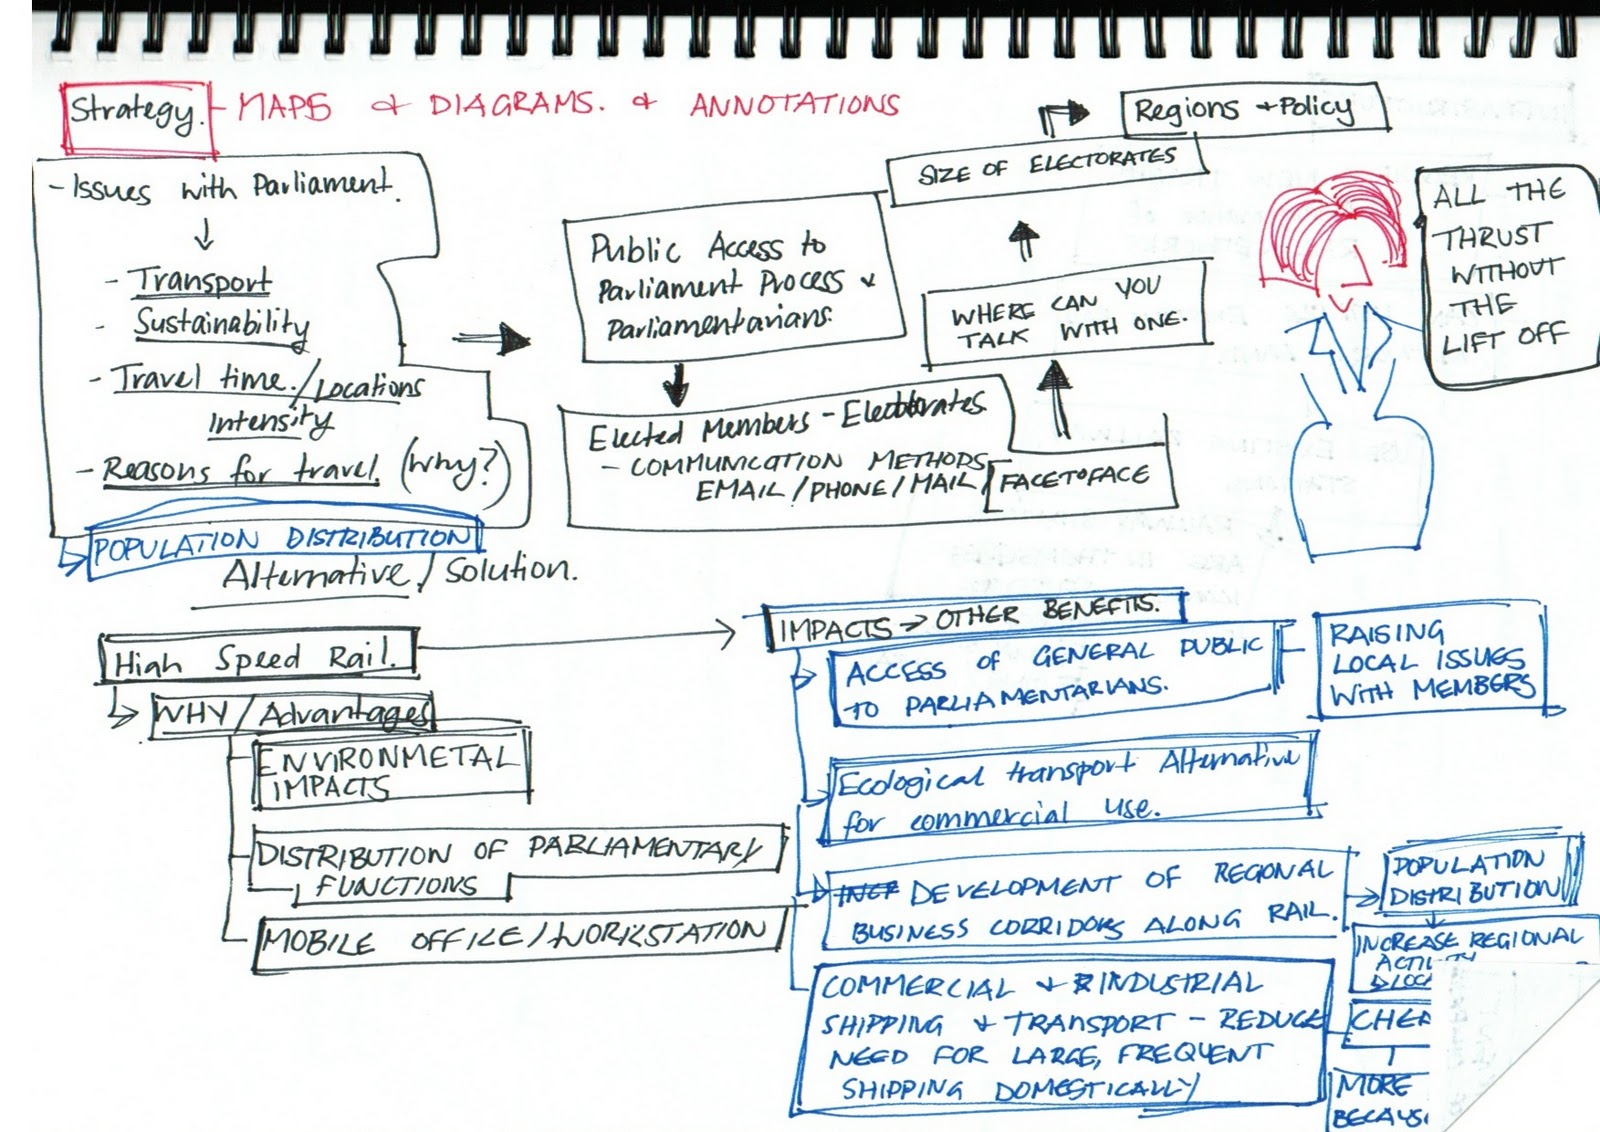 Strategy. - MAPS & DIAGRAMS. & ANNOTATIONS
- Issues with Parliament.
- Transport
- Sustainability
- Travel time. / Locations
Intensity
- Reasons for travel. (Why?)
POPULATION DISTRIBUTION
Public Access to
Parliament Process &
Parliamentarians.
Elected Members - Electorates.
- COMMUNICATION METHODS
EMAIL / PHONE / MAIL /
FACE TO FACE
WHERE CAN YOU
TALK WITH ONE.
SIZE OF ELECTORATES
Regions + Policy
ALL THE
THRUST
WITHOUT
THE
LIFT OFF
Alternative / Solution.
High Speed Rail.
WHY / Advantages
ENVIRONMETAL
IMPACTS
DISTRIBUTION OF PARLIAMENTARY
FUNCTIONS
MOBILE OFFICE / WORKSTATION
IMPACTS → OTHER BENEFITS.
ACCESS OF GENERAL PUBLIC
TO PARLIAMENTARIANS.
RAISING
LOCAL ISSUES
WITH MEMBERS
Ecological transport Alternative
for commercial use.
DEVELOPMENT OF REGIONAL
BUSINESS CORRIDORS ALONG RAIL.
POPULATION
DISTRIBUTION
INCREASE REGIONAL
COMMERCIAL & INDUSTRIAL
SHIPPING & TRANSPORT - REDUCE
NEED FOR LARGE, FREQUENT
SHIPPING DOMESTICALLY
MORE